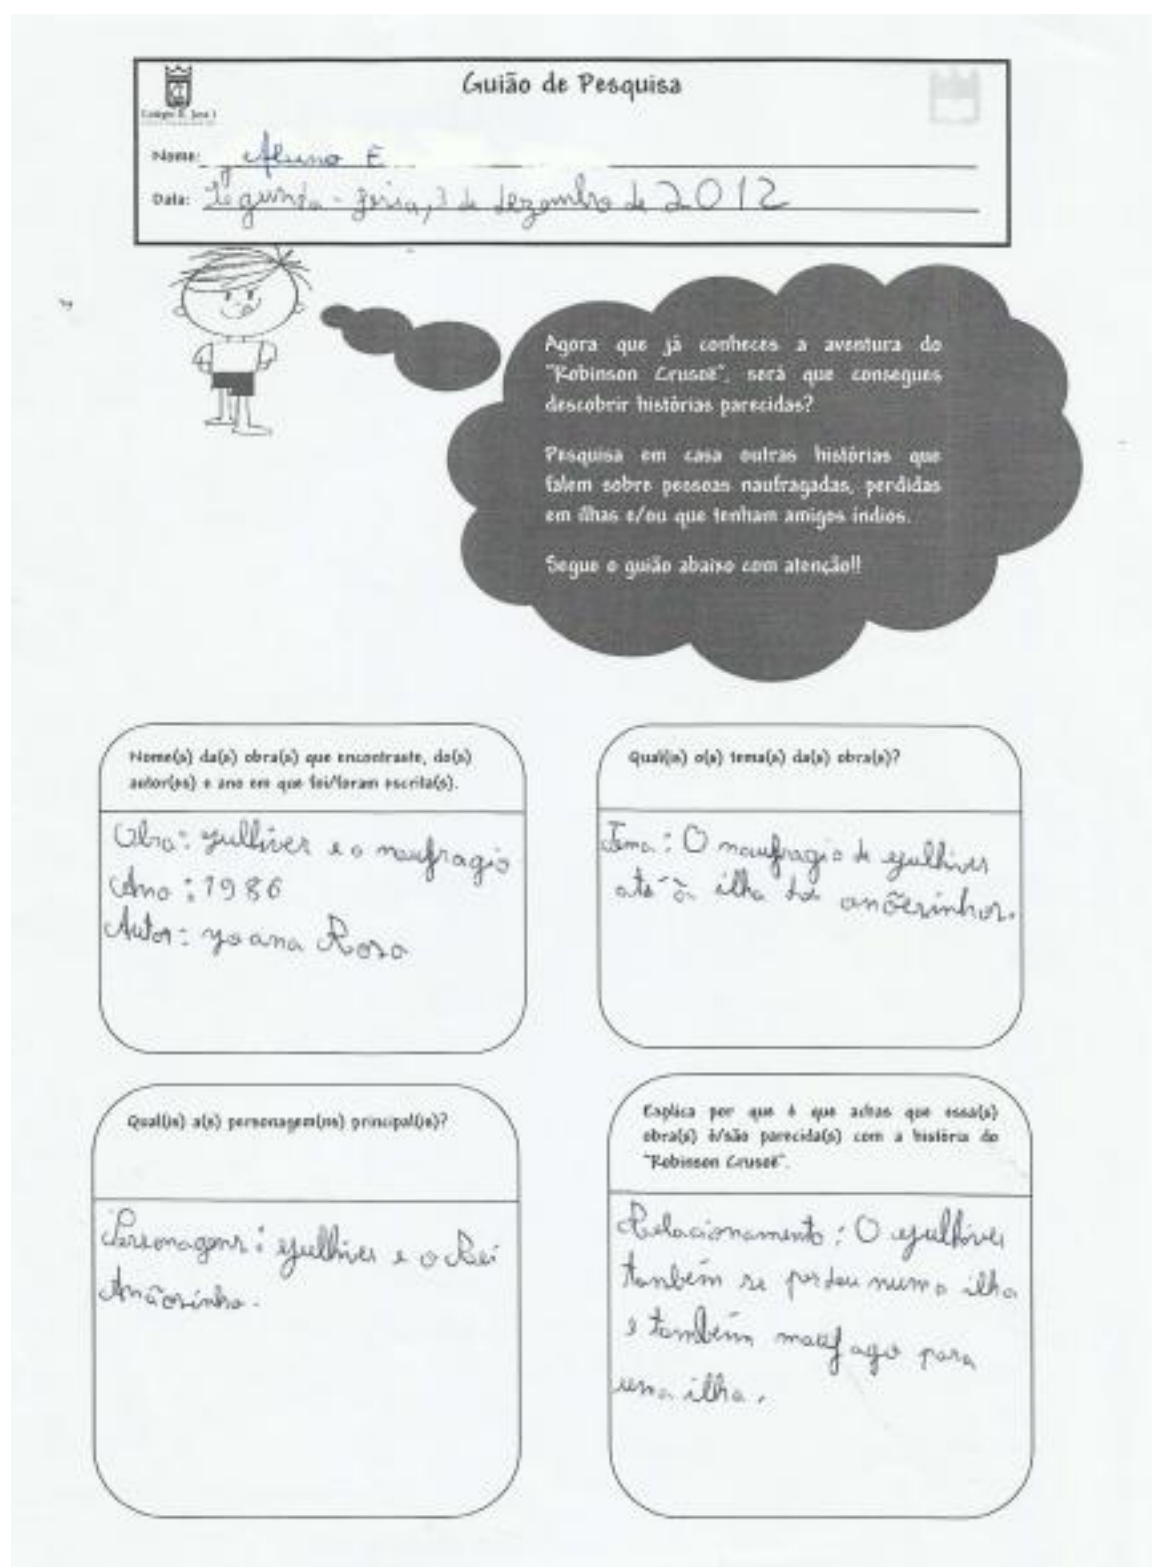 Guião de Pesquisa
Colégio D. José I
Nome: Aluno E
Data: Segunda-feira, 3 de dezembro de 2012
Agora que já conheces a aventura do
"Robinson Crusoé", será que consegues
descobrir histórias parecidas?
Pesquisa em casa outras histórias que
falem sobre pessoas naufragadas, perdidas
em ilhas e/ou que tenham amigos índios.
Segue o guião abaixo com atenção!!
Nome(s) da(s) obra(s) que encontraste, do(s)
autor(es) e ano em que foi/foram escrita(s).
Obra: gulliver e o naufragio
Ano: 1986
Autor: yoana Rosa
Qual(is) o(s) tema(s) da(s) obra(s)?
Tema: O naufragio de gulliver
até à ilha dos anõezinhos.
Qual(is) a(s) personagem(ns) principal(is)?
Personagens: gulliver e o Rei
Anãozinho.
Explica por que é que achas que essa(s)
obra(s) é/são parecida(s) com a história do
"Robinson Crusoé".
Relacionamento: O gulliver
tanbém se perdeu numa ilha
e também naufago para
uma ilha.